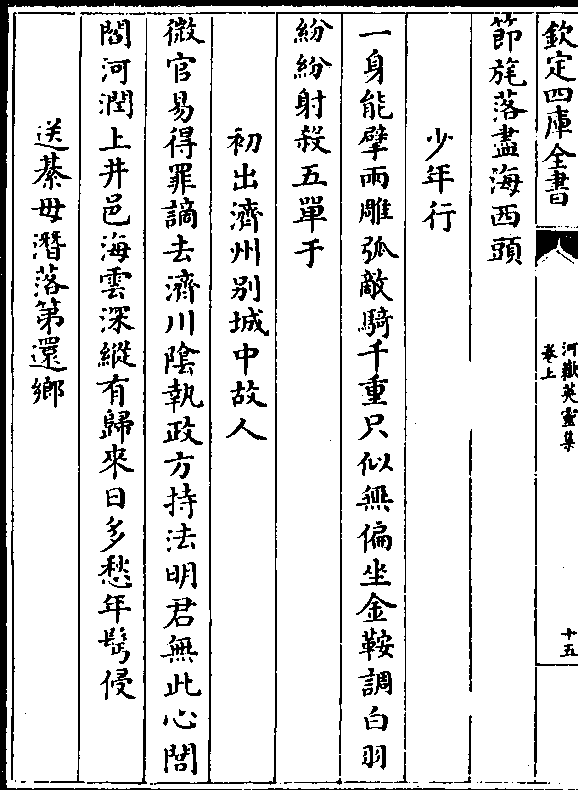 欽定四庫全書
河嶽英靈集
卷上
十五
節旄落盡海西頭
少年行
一身能擘兩雕弧敵騎千重只似無偏坐金鞍調白羽
紛紛射殺五單于
初出濟州别城中故人
微官易得罪謫去濟川陰執政方持法明君無此心閭
閻河潤上井邑海雲深縱有歸來日多愁年鬂侵
送綦毋潛落第還鄉